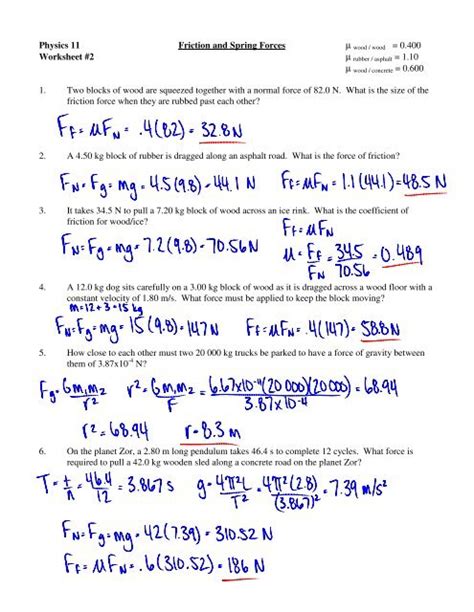 Physics 11 Friction and Spring Forces μ wood / wood = 0.400
Worksheet #2 μ rubber / asphalt = 1.10
μ wood / concrete = 0.600
1. Two blocks of wood are squeezed together with a normal force of 82.0 N. What is the size of the
friction force when they are rubbed past each other?
Ff = μFN = .4(82) = 32.8N
2. A 4.50 kg block of rubber is dragged along an asphalt road. What is the force of friction?
FN = Fg = mg = 4.5(9.8) = 44.1 N Ff = μFN = 1.1(44.1) = 48.5 N
3. It takes 34.5 N to pull a 7.20 kg block of wood across an ice rink. What is the coefficient of
friction for wood/ice?
Ff = μFN
FN = Fg = mg = 7.2(9.8) = 70.56N μ = Ff/FN = 34.5/70.56 = 0.489
4. A 12.0 kg dog sits carefully on a 3.00 kg block of wood as it is dragged across a wood floor with a
constant velocity of 1.80 m/s. What force must be applied to keep the block moving?
m = 12 + 3 = 15 kg
FN = Fg = mg = 15(9.8) = 147N Ff = μFN = .4(147) = 58.8N
5. How close to each other must two 20 000 kg trucks be parked to have a force of gravity between
them of 3.87x10⁻⁴ N?
Fg = Gm₁m₂/r² r² = Gm₁m₂/F = 6.67x10⁻¹¹(20 000)(20000)/3.87x10⁻⁴ = 68.94
r² = 68.94 r = 8.3 m
6. On the planet Zor, a 2.80 m long pendulum takes 46.4 s to complete 12 cycles. What force is
required to pull a 42.0 kg wooden sled along a concrete road on the planet Zor?
T = t/n = 46.4/12 = 3.867 s g = 4π²L/T² = 4π²(2.8)/(3.867)² = 7.39 m/s²
FN = Fg = mg = 42(7.39) = 310.52 N
Ff = μFN = .6(310.52) = 186 N